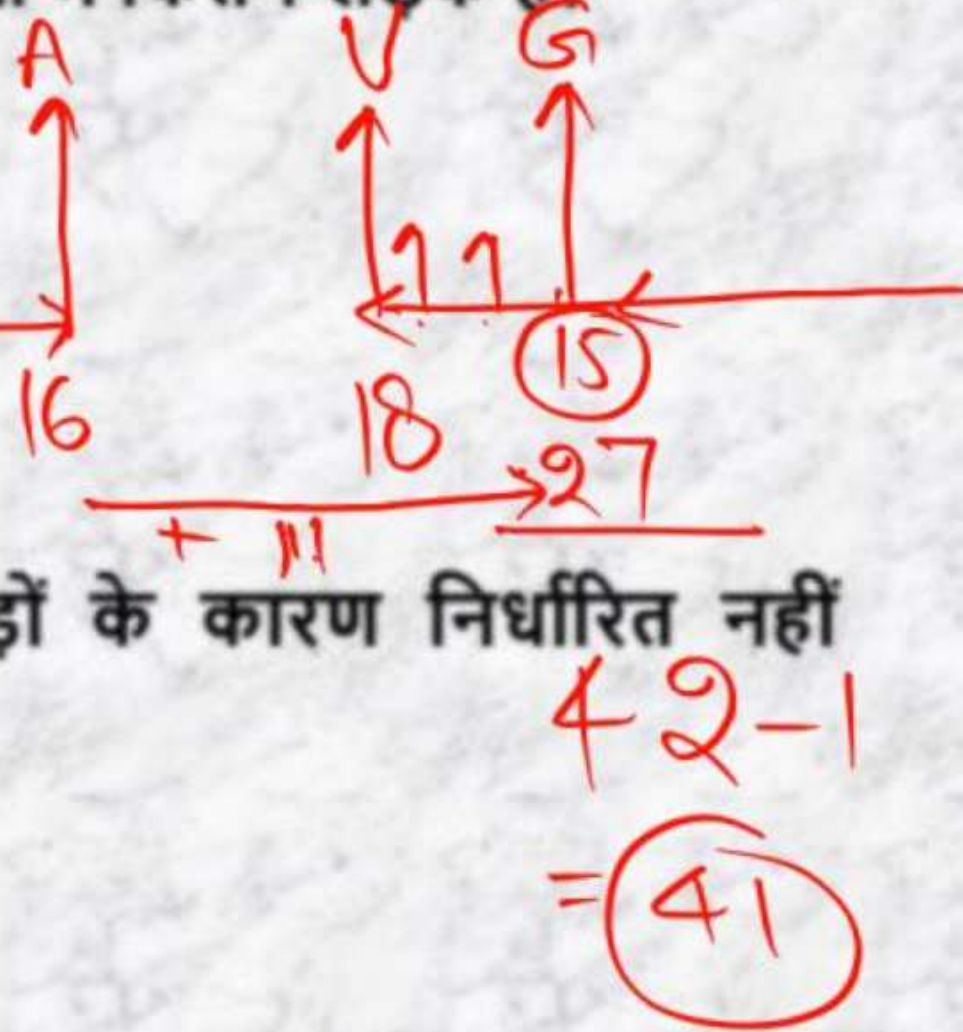 A V G
16 18 15
27
+ 111
ड़ों के कारण निर्धारित नहीं
42-1
=41